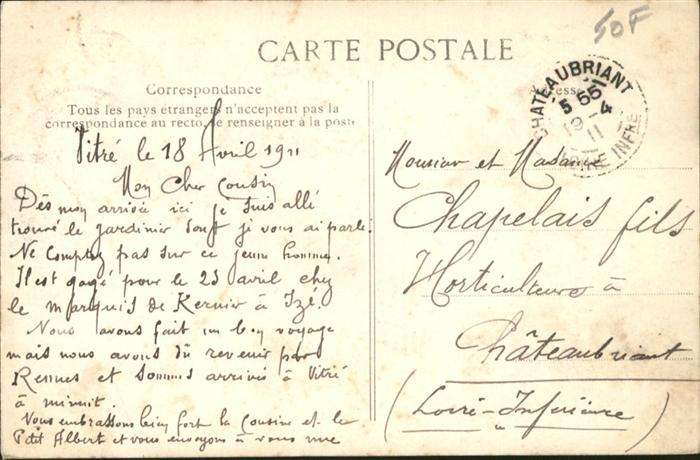 50F
CARTE POSTALE
Correspondance
Tous les pays etrangers n'acceptent pas la
correspondance au recto. Se renseigner à la poste
CHATEAUBRIANT
LOIRE INFRE
Vitré le 18 Avril 1911
Mon Cher Cousin
Dès mon arrivée ici je suis allé
trouvé le jardinier dont je vous ai parlé.
Ne comptez pas sur ce jeune homme.
Il est gagé pour le 23 avril chez
le marquis de Kernier à Izé.
Nous avons fait un bon voyage
mais nous avons dû revenir par
Rennes et sommes arrivés à Vitré
à minuit.
Vous embrassons bien fort la Cousine et le
Petit Albert et vous envoyons à vous une
Monsieur et Madame
Chapelais fils
Horticulteurs à
Châteaubriant
(Loire-Inférieure)